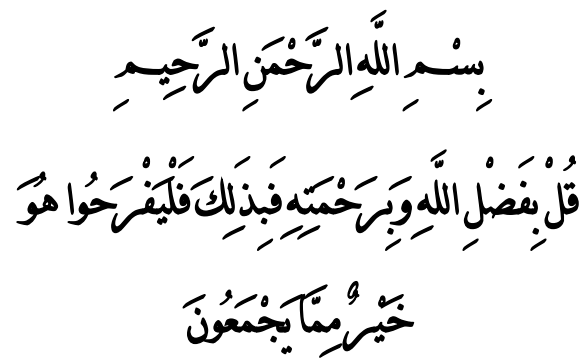 بِسْمِ اللَّهِ الرَّحْمَنِ الرَّحِيمِ
قُلْ بِفَضْلِ اللَّهِ وَبِرَحْمَتِهِ فَبِذَلِكَ فَلْيَفْرَحُوا هُوَ
خَيْرٌ مِمَّا يَجْمَعُونَ